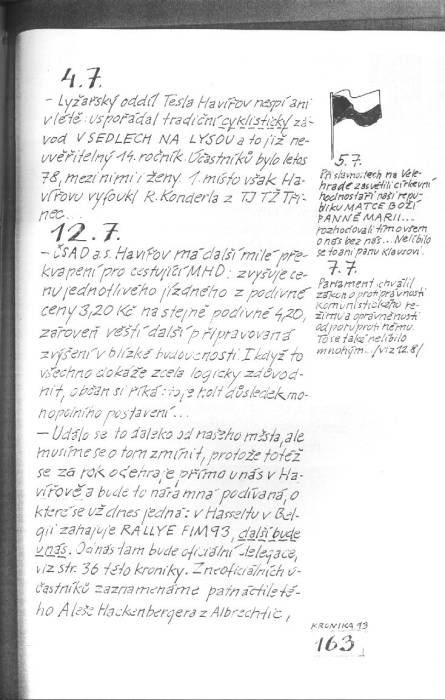 4.7.
- Lyžařský oddíl Tesla Havířov nespí ani
v létě: uspořádal tradiční cyklistický zá-
vod V SEDLECH NA LYSOU a to již ne-
uvěřitelný 14. ročník. Účastníků bylo letos
78, mezi nimi i ženy. 1. místo však Ha-
vířovu vyfoukl R. Konderla z TJ TŽ Tři-
nec...
12.7.
- ČSAD a.s. Havířov má další milé pře-
kvapení pro cestující MHD: zvyšuje ce-
nu jednotlivého jízdného z podivné
ceny 3,20 Kč na stejně podivné 4,20,
zároveň věští další připravovaná
zvýšení v blízké budoucnosti. I když to
všechno dokáže zcela logicky zdůvod-
nit, občan si říká: to je holt důsledek mo-
nopolního postavení...
- Událo se to daleko od našeho města, ale
musíme se o tom zmínit, protože totéž
se za rok odehraje přímo u nás v Ha-
vířově, a bude to náramná podívaná, o
které se už dnes jedná: v Hasseltu v Bel-
gii zahajuje RALLYE FIM 93, další bude
u nás. Od nás tam bude oficiální delegace,
viz str. 36 této kroniky. Z neoficiálních ú-
častníků zaznamenáme patnáctileté-
ho Aleše Hackenbergera z Albrechtic,
5.7.
Při slavnostech na Vele-
hradě zasvětili církevní
hodnostáři naši repu-
bliku MATCE BOŽÍ
PANNĚ MARII...
rozhodovali tím ovšem
o nás bez nás... Nelíbilo
se to ani panu Klausovi.
7.7.
Parlament schválil
zákon o protiprávnosti
komunistického re-
žimu a oprávněnosti
odporu proti němu.
To se také nelíbilo
mnohým... /viz 12.8/
KRONIKA 13
163